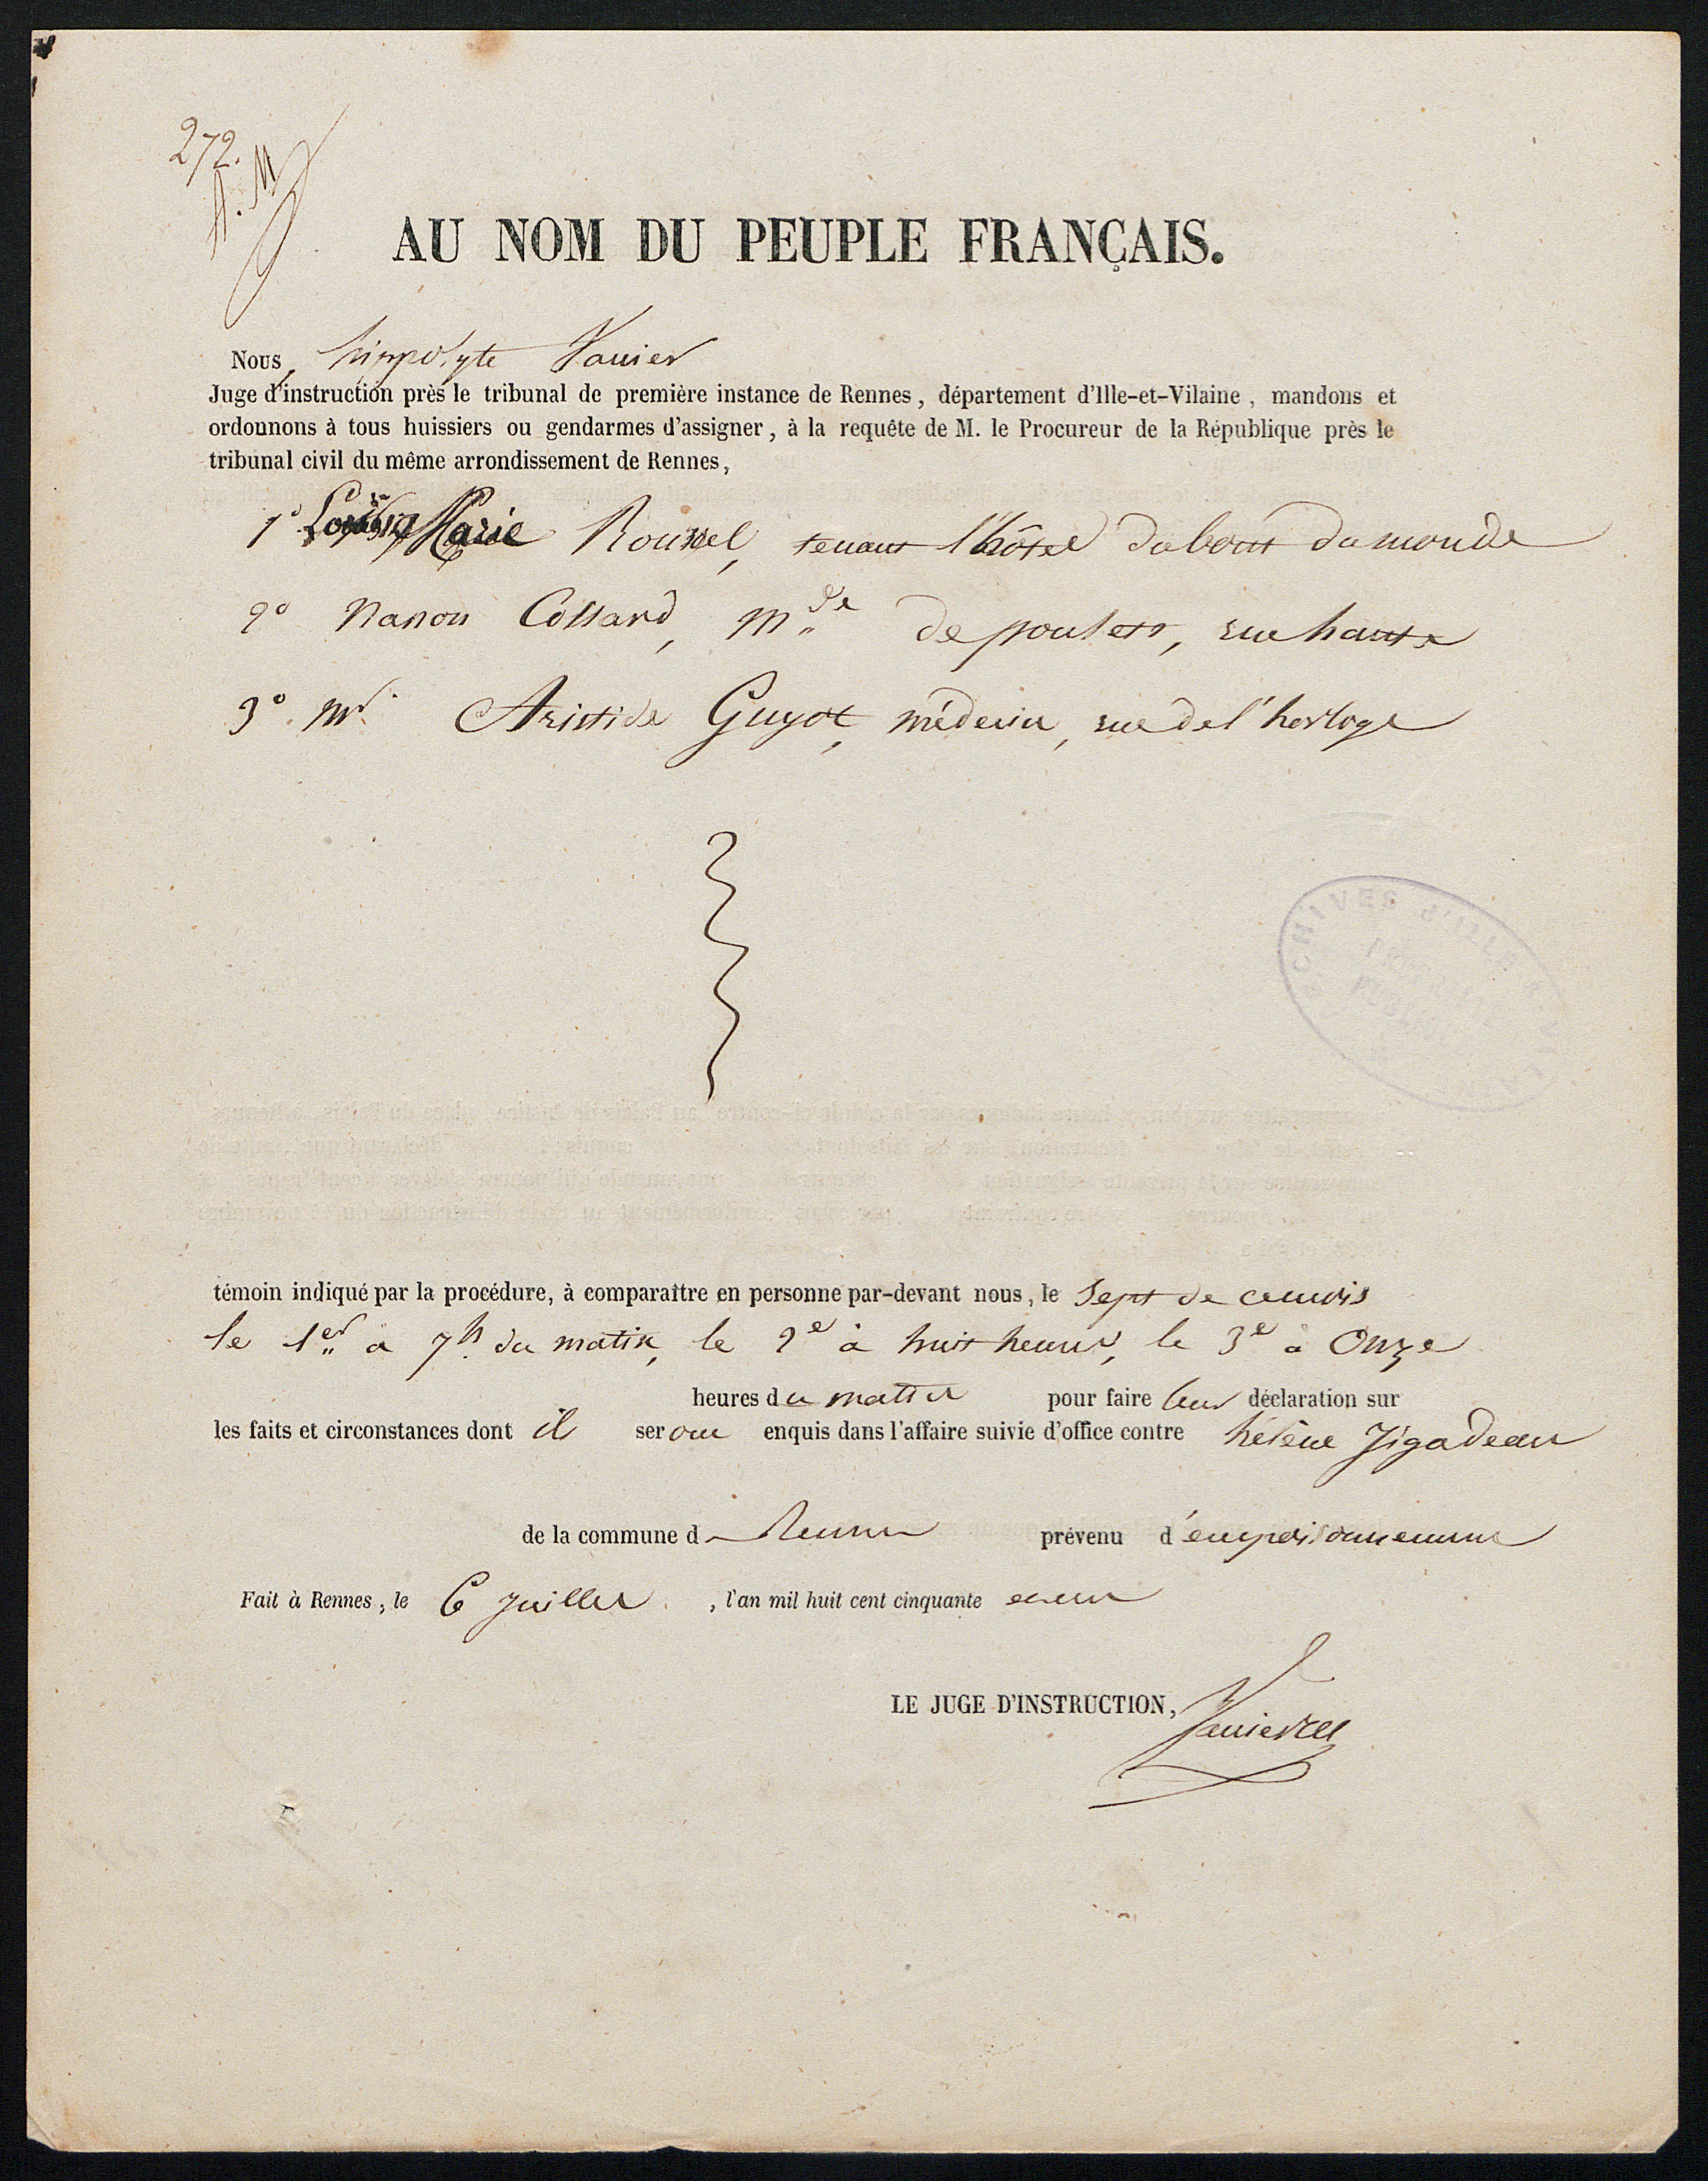 272.
AU NOM DU PEUPLE FRANÇAIS.
Nous, hippolyte Vanier
Juge d'instruction près le tribunal de première instance de Rennes, département d'Ille-et-Vilaine, mandons et
ordonnons à tous huissiers ou gendarmes d'assigner, à la requête de M. le Procureur de la République près le
tribunal civil du même arrondissement de Rennes,
1° Marie Roussel, tenant l'hôtel du bout du monde
2° Nanon Collard, Mde de poulets, rue haute
3° Mr. Aristide Guyot, médecin, rue de l'horloge
ARCHIVES d'ILLE & VILAINE
PROPRIÉTÉ
PUBLIQUE
témoin indiqué par la procédure, à comparaître en personne par-devant nous, le sept de ce mois
le 1er à 7h du matin, le 2e à huit heures, le 3e à Onze
heures du matin pour faire leur déclaration sur
les faits et circonstances dont il seront enquis dans l'affaire suivie d'office contre hélène Jégadeau
de la commune de Rennes prévenu d'empoisonnement
Fait à Rennes, le 6 Juillet, l'an mil huit cent cinquante et un
LE JUGE D'INSTRUCTION,
Vanier